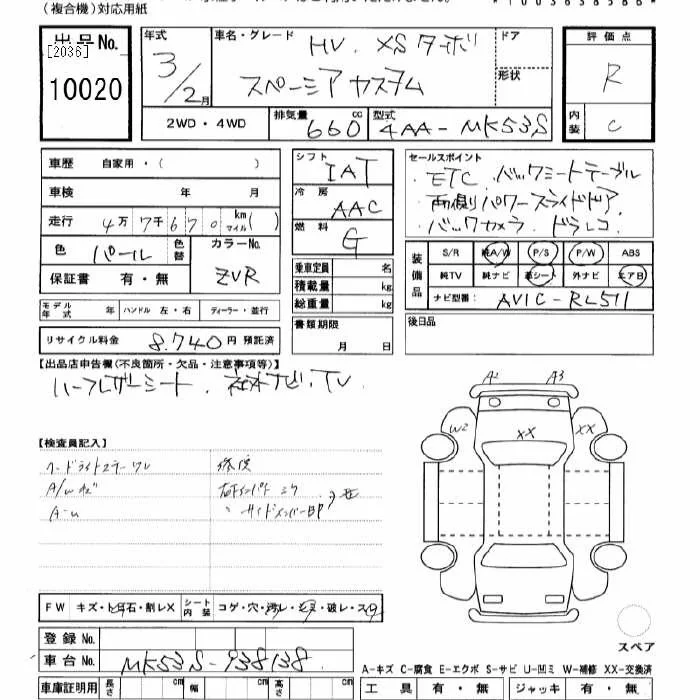 (複合機)対応用紙
出品No.
[2036]
10020
年式 3/2月
車名・グレード HV. XSターボ
スペーシアカスタム
ドア
形状
評価点
R
内装 C
2WD・4WD
排気量 660 cc
型式 4AA-MK53S
車歴 自家用・( )
車検 年 月
走行 4万7千670 km マイル( )
色 パール
色替
カラーNo. ZVR
保証書 有・無
モデル年式 年
ハンドル 左・右
ディーラー・並行
リサイクル料金 8.740円 預託済
シフト IAT
冷房 AAC
燃料 G
乗車定員 名
積載量 kg
総重量 kg
書類期限
月 日
セールスポイント
・ETC ・バックミートテーブル
・両側パワースライドドア
・バックカメラ ・ドラレコ
装備品
S/R 純A/W P/S P/W ABS
純TV 純ナビ 革シート 外ナビ エアB
ナビ型番: AVIC-RL511
後日品
【出品店申告欄(不良箇所・欠品・注意事項等)】
ハーフレザーシート. 社外ナビ・TV
【検査員記入】
A/W キズ
修復
A-u
A2 A3
W2 XX XX
FW キズ・トビ石・割レX
シート内装 コゲ・穴・汚レ・キズ・破レ・スレ
登録No.
車台No. MK53S-938138
車庫証明用 長さ cm 幅 cm 高さ cm
スペア
A-キズ C-腐食 E-エクボ S-サビ U-凹ミ W-補修 XX-交換済
工具 有・無 ジャッキ 有・無